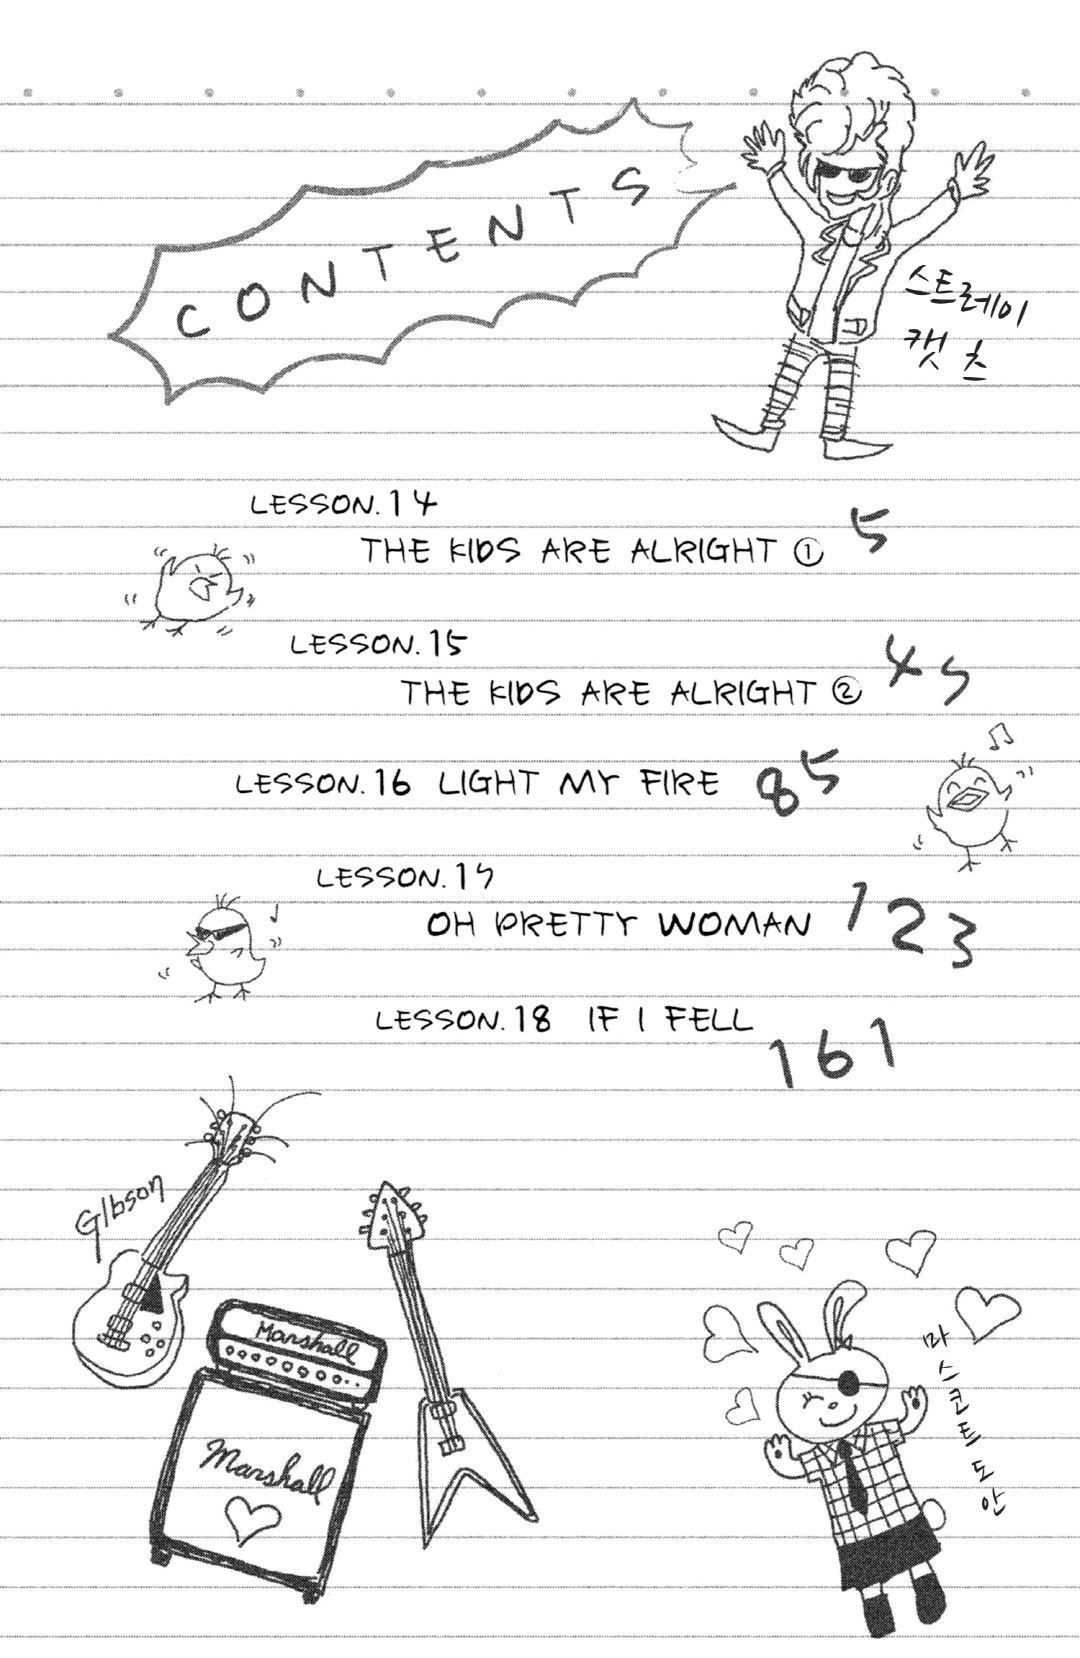 CONTENTS
스트레이
캣츠
LESSON.14
THE KIDS ARE ALRIGHT ① 5
LESSON.15
THE KIDS ARE ALRIGHT ② 45
LESSON.16 LIGHT MY FIRE 85
LESSON.17
OH PRETTY WOMAN 123
LESSON.18 IF I FELL
161
Gibson
Marshall
Marshall
마스코트 도안